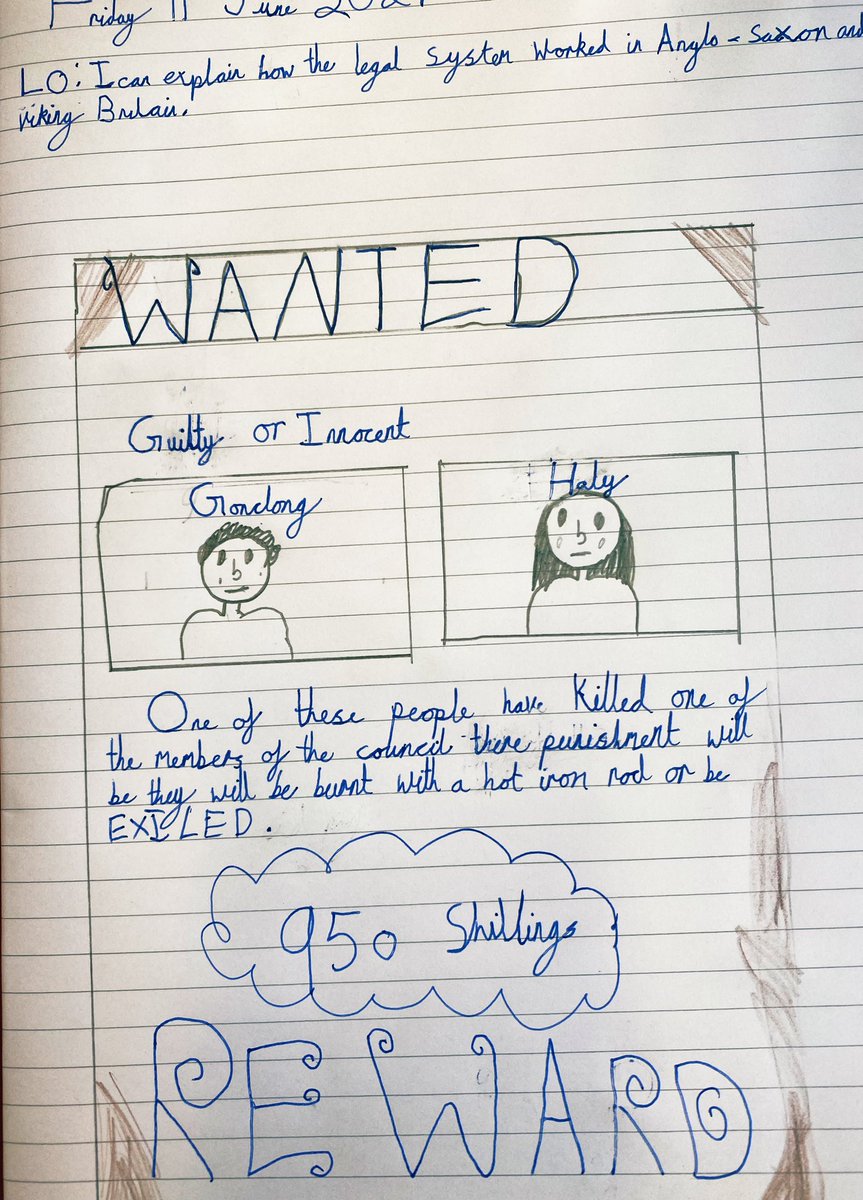 Friday 11 June 2021
LO: I can explain how the legal system worked in Anglo-Saxon and
viking Britain.
WANTED
Guilty or Innocent
Gondong
Haly
One of these people have killed one of
the members of the council there punishment will
be they will be burnt with a hot iron rod or be
EXILED.
950 Shillings
REWARD